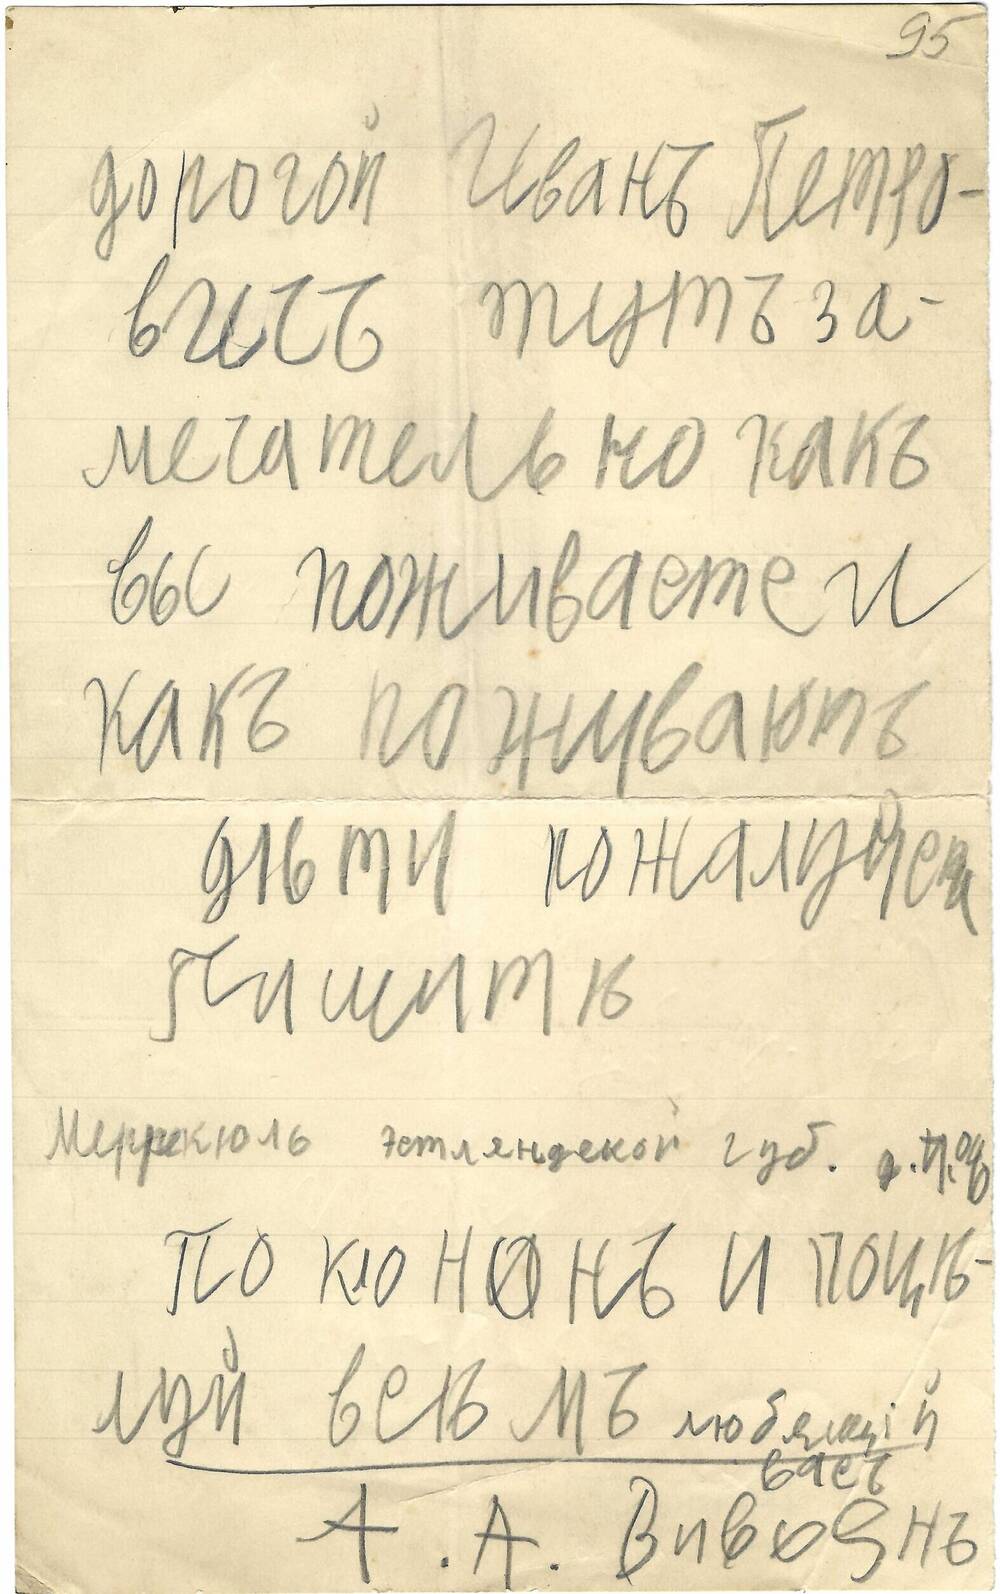 95
дорогой Иванъ Петро-
вичъ тутъ за-
мечательно какъ
вы поживаете и
какъ поживаютъ
дѣти пожалуйста
Пишитѣ
Меррекюль Эстляндской губ.
по кло нонъ и поцѣ-
луй всѣмъ любящій
васъ
А. А. Вивоянъ